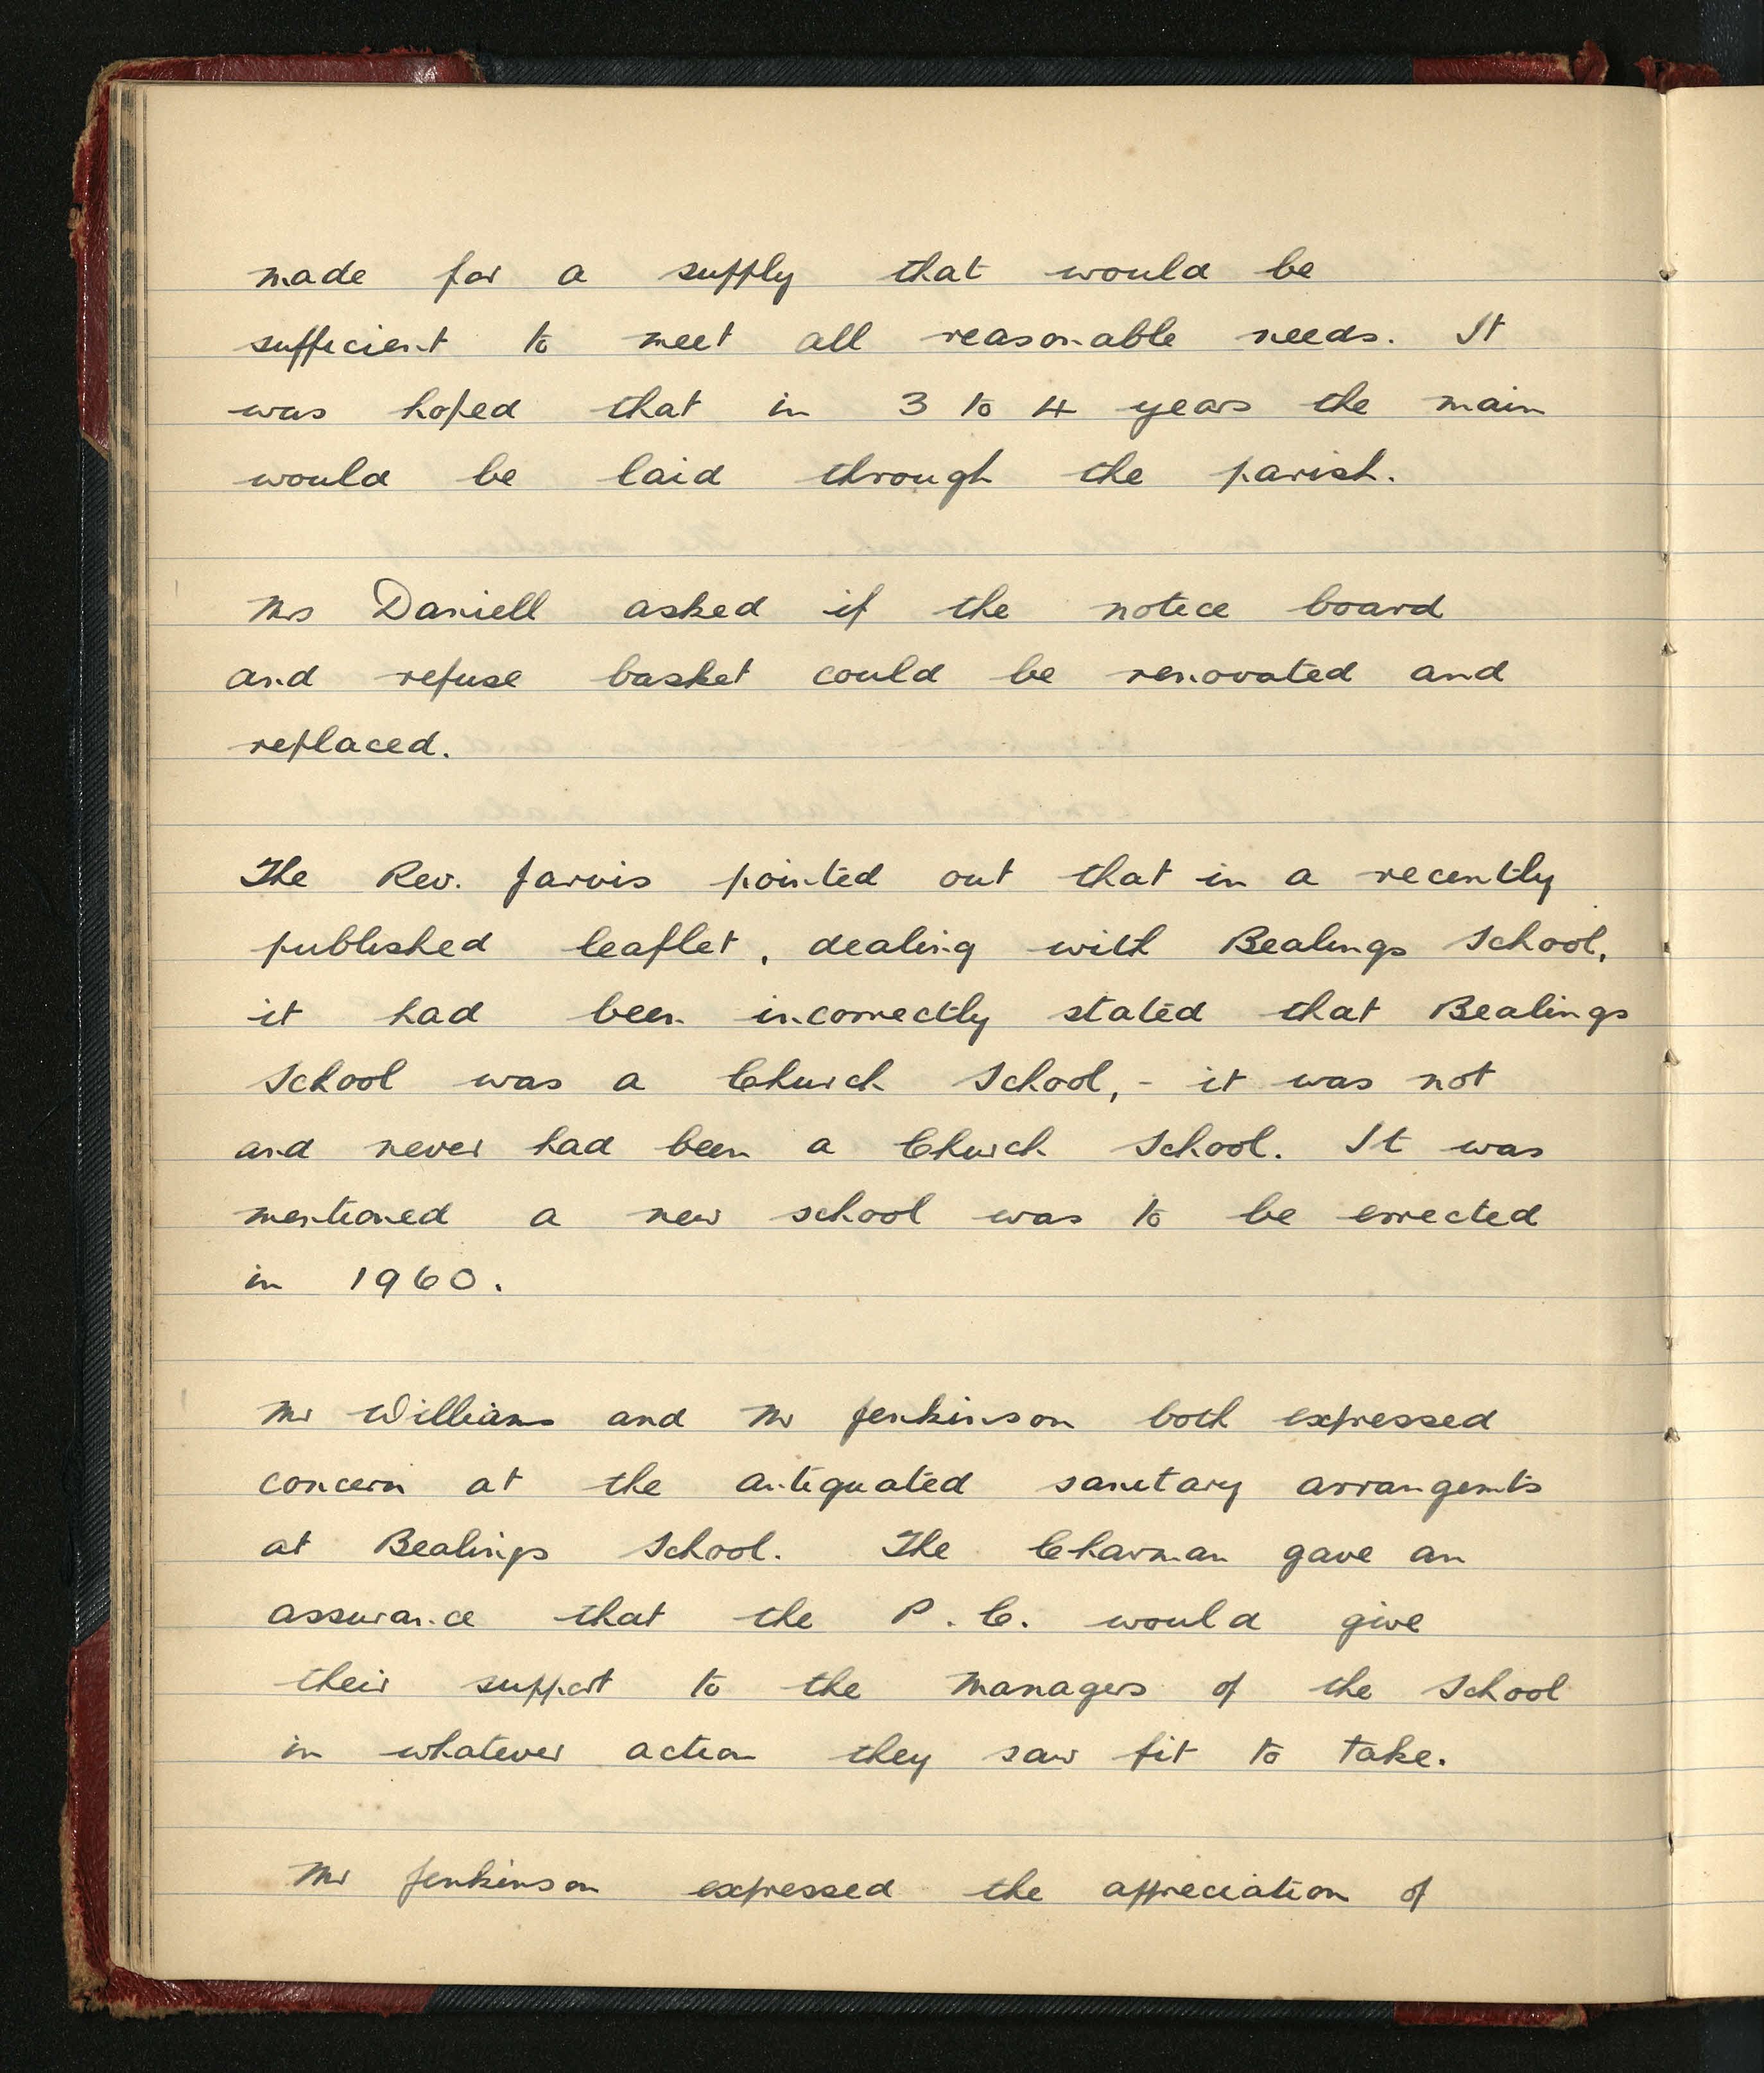 made for a supply that would be
sufficient to meet all reasonable needs. It
was hoped that in 3 to 4 years the main
would be laid through the parish.
Mrs Daniell asked if the notice board
and refuse basket could be renovated and
replaced.
The Rev. Jarvis pointed out that in a recently
published leaflet, dealing with Bealings School,
it had been incorrectly stated that Bealings
School was a Church School, - it was not
and never had been a Church School. It was
mentioned a new school was to be errected
in 1960.
Mr Williams and Mr Jenkinson both expressed
concern at the antiquated sanitary arrangemts
at Bealings School. The Chairman gave an
assurance that the P.C. would give
their support to the Managers of the School
in whatever action they saw fit to take.
Mr Jenkinson expressed the appreciation of